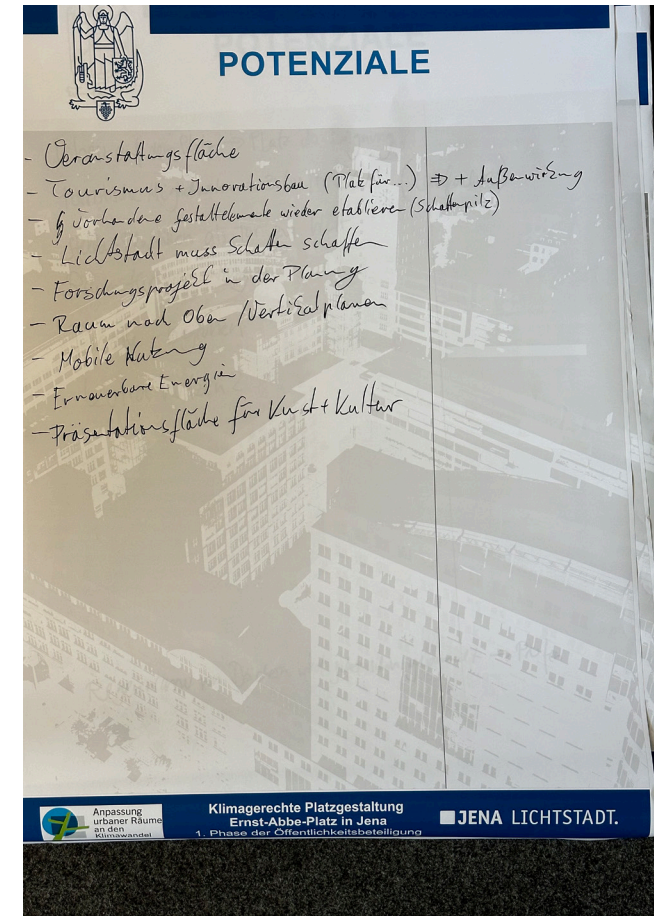 POTENZIALE
- Veranstaltungsfläche
- Tourismus + Innovationsbau (Platz für...) ⇒ + Außenwirkung
- vorhandene Gestaltelemente wieder etablieren (Schattenpilz)
- Lichtstadt muss Schatten schaffen
- Forschungsprojekt in der Planung
- Raum nach Oben / Vertikal planen
- Mobile Nutzung
- Erneuerbare Energien
- Präsentationsfläche für Kunst + Kultur
Anpassung
urbaner Räume
an den
Klimawandel
Klimagerechte Platzgestaltung
Ernst-Abbe-Platz in Jena
1. Phase der Öffentlichkeitsbeteiligung
JENA LICHTSTADT.